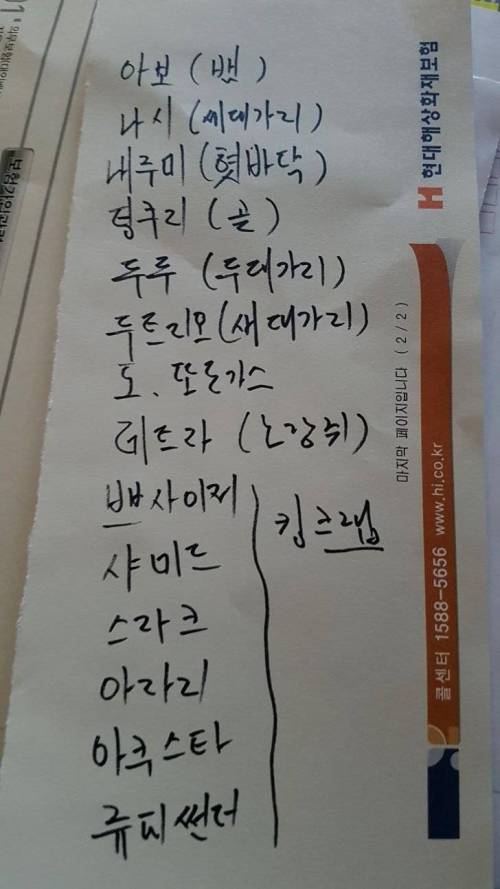 아보 (뱀)
나시 (세대가리)
내루미 (혓바닥)
텅쿠리 (골)
두루 (두대가리)
두트리오 (새대가리)
도. 또도가스
레트라 (노랑쥐)
뿔사이저
킹크랩
샤미드
스라크
아라리
아쿠스타
쥬피썬더
현대해상화재보험
마지막 페이지입니다 ( 2 / 2 )
콜센터 1588-5656 www.hi.co.kr